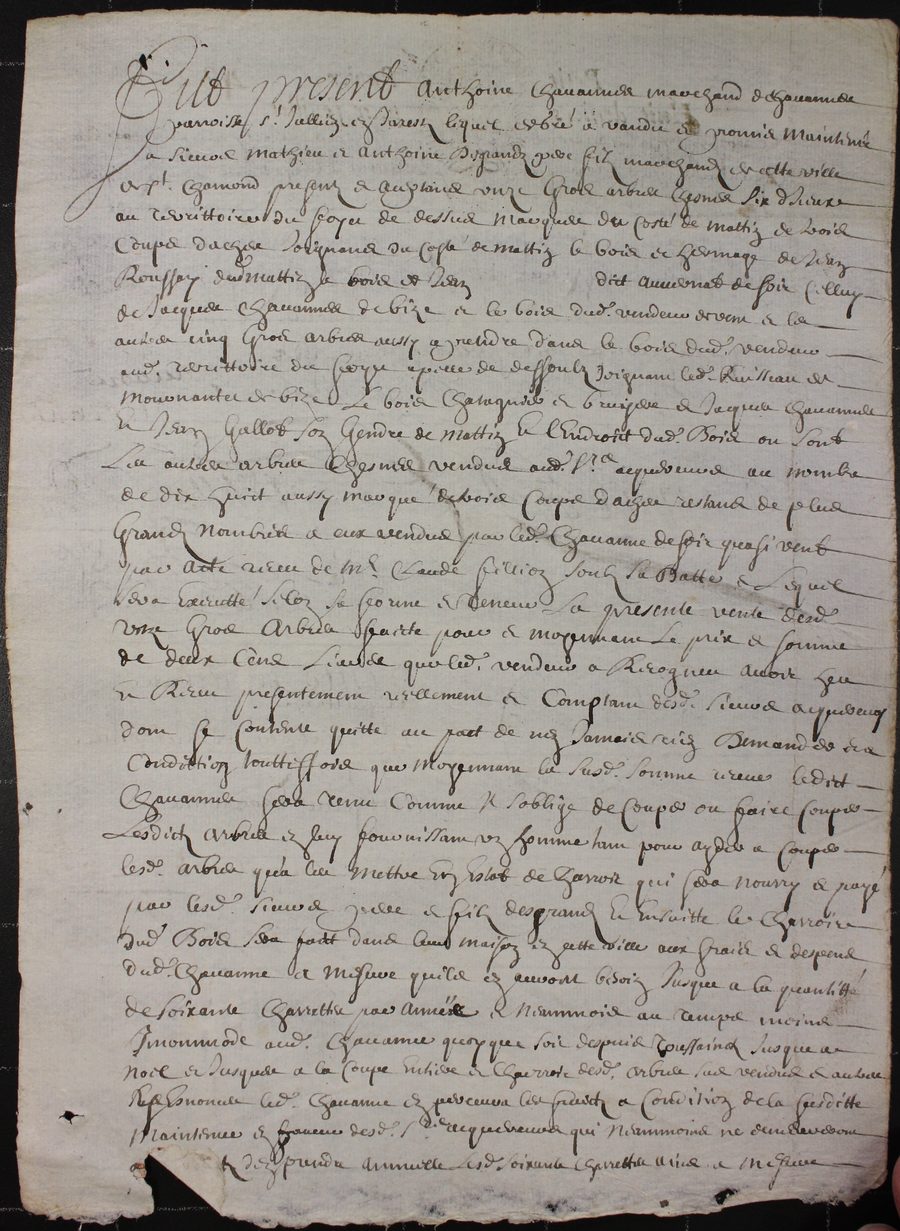 Fut present Anthoine Chauannes marchand de chauannes
parroisse St Jullien en Jarestz lequel de gré à vandu et promis maintenir
a Sieurs Mathieu et Anthoine Degrandz pere filz marchandz de cette ville
de St Chamond presentz et acceptans unze Gros arbres chesnes six d'iceux
au territtoire du de dessus marquer du costé de mattin de bois
Coupé joignans du costé de mattin le bois et hermage de Jean
du mattin le bois de Jean dict de soir Celluy
de Jacques Chauannes de bize et le bois dud. vendeur de vent et les
autres cinq Gros arbres aussy a prendre dans le bois dud. vendeur
aud. territtoire du appellé de dessoulz Joignant led. Ruisseau de
de bize Le bois et bruyere de Jacques Chauannes
et Jean Gallot son Gendre de mattin et l'Endroict dud. Bois ou sont
Les autres arbres Chesnes vendus aud. Srs acquereurs au nombre
de dix huict aussy marqué de bois Coupé restans de plus
Grand Nombres a eux vendus par led. Chauanne de soir quasi vent
par acte receu de Me Claude soubz sa Datte et Lequel
sera Executté selon sa forme et teneur La presente vente desd.
unze Gros Arbres faicte pour et moyennant Le prix et somme
de deux Cens Liures que led. vendeur a Recogneu auoir heu
et Receu presentement reellement et Comptant desd. Sieurs acquereurs
dont se contente quitte au pact de n'en Jamais rien Demander et a
Condittion touttesfois que moyennant la susd. somme receue ledict
Chauannes sera tenu Comme Il s'oblige de Couper ou faire Couper
Lesdictz Arbres en luy fournissant un homme tant pour ayder a Couper
lesd. arbres qu'a les Mettre En Estat de Charroir qui sera nourry et payé
par lesd. Sieurs pere et filz desgrand et Ensuitte le Charroir
dud. Bois sera faict dans leur maison en cette ville aux fraix et despens
dud. Chauanne a Mesure quils en auront besoin Jusques a la quantitté
de soixante Charrettes par Année et Neanmoins au temps moins
Jncommode aud. Chauanne quoyque soit despuis Toussainctz Jusque a
Noel et Jusques a la Coupe Entiere et Charroir desd. arbres sus vendus et autres
led. Chauanne en perceura les fruictz a Condition de la susditte
Maintenue en faueur desd. Srs acquereurs qui Neanmoins ne
prendre annuelle Lesd. soixante Charrettes ains a Mesure